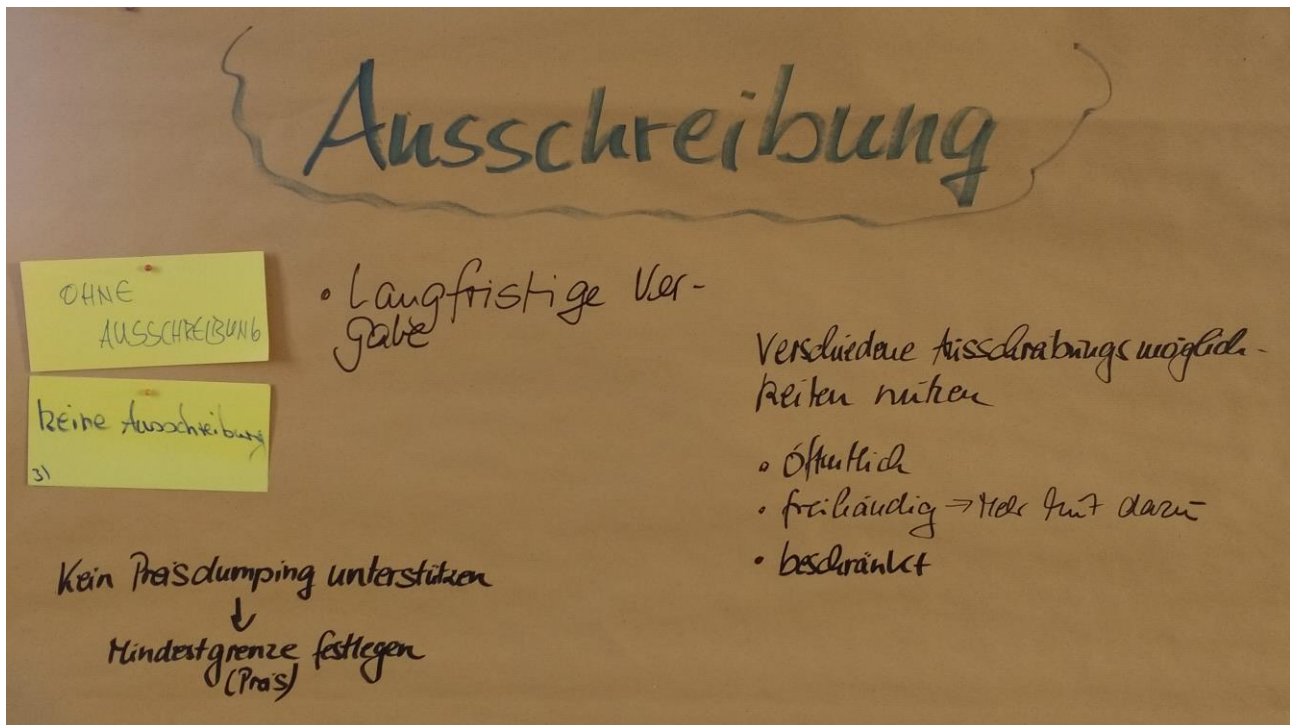 Ausschreibung
OHNE
AUSSCHREIBUNG
keine Ausschreibung
3)
• Langfristige Ver-
gabe
Verschiedene Ausschreibungsmöglich-
keiten nutzen
• öffentlich
• freihändig → Mehr Mut dazu
• beschränkt
Kein Preisdumping unterstützen
↓
Mindestgrenze festlegen
(Preis)